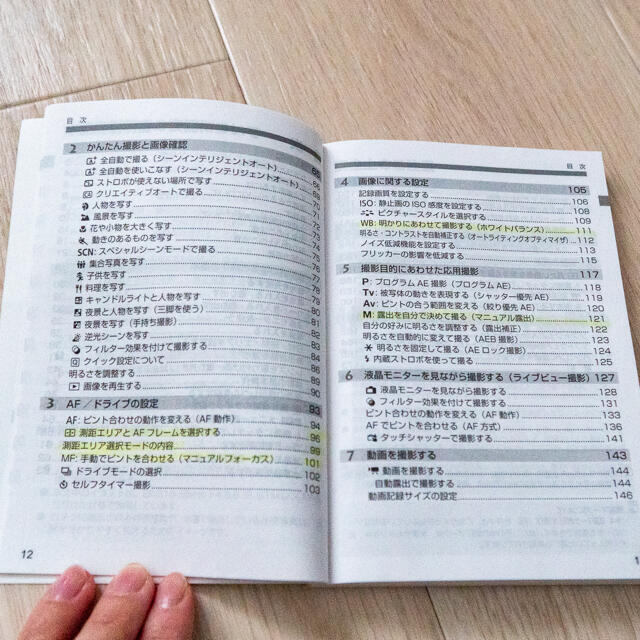 目 次
2 かんたん撮影と画像確認 65
全自動で撮る（シーンインテリジェントオート） 66
全自動を使いこなす（シーンインテリジェントオート） 68
ストロボが使えない場所で写す
クリエイティブオートで写す
人物を写す
風景を写す
花や小物を大きく写す
動きのあるものを写す
SCN: スペシャルシーンモードで撮る 75
集合写真を写す
子供を写す
料理を写す
キャンドルライトと人物を写す
夜景と人物を写す（三脚を使う）
夜景を写す（手持ち撮影）
逆光シーンを写す
フィルター効果を付けて撮影する
クイック設定について 86
明るさを調整する 87
画像を再生する 90
3 AF／ドライブの設定 93
AF: ピント合わせの動作を変える（AF 動作） 94
測距エリアと AF フレームを選択する 96
測距エリア選択モードの内容 99
MF: 手動でピントを合わせる（マニュアルフォーカス） 101
ドライブモードの選択 102
セルフタイマー撮影 103
12
目 次
4 画像に関する設定 105
記録画質を設定する 106
ISO: 静止画の ISO 感度を設定する 108
ピクチャースタイルを選択する 109
WB: 明かりにあわせて撮影する（ホワイトバランス） 111
明るさ・コントラストを自動補正する（オートライティングオプティマイザ） 112
ノイズ低減機能を設定する 113
フリッカーの影響を低減する 115
5 撮影目的にあわせた応用撮影 117
P: プログラム AE 撮影（プログラム AE） 118
Tv: 被写体の動きを表現する（シャッター優先 AE） 119
Av: ピントの合う範囲を変える（絞り優先 AE） 120
M: 露出を自分で決めて撮る（マニュアル露出） 121
自分の好みに明るさを調整する（露出補正） 122
明るさを自動的に変えて撮る（AEB 撮影） 123
明るさを固定して撮る（AE ロック撮影） 124
内蔵ストロボを使って撮る 125
6 液晶モニターを見ながら撮影する（ライブビュー撮影） 127
液晶モニターを見ながら撮影する 128
フィルター効果を付けて撮影する 131
ピント合わせの動作を変える（AF 動作） 133
AF でピントを合わせる（AF 方式） 136
タッチシャッターで撮影する 141
7 動画を撮影する 143
動画を撮影する 144
自動露出で撮影する 144
動画記録サイズの設定 146